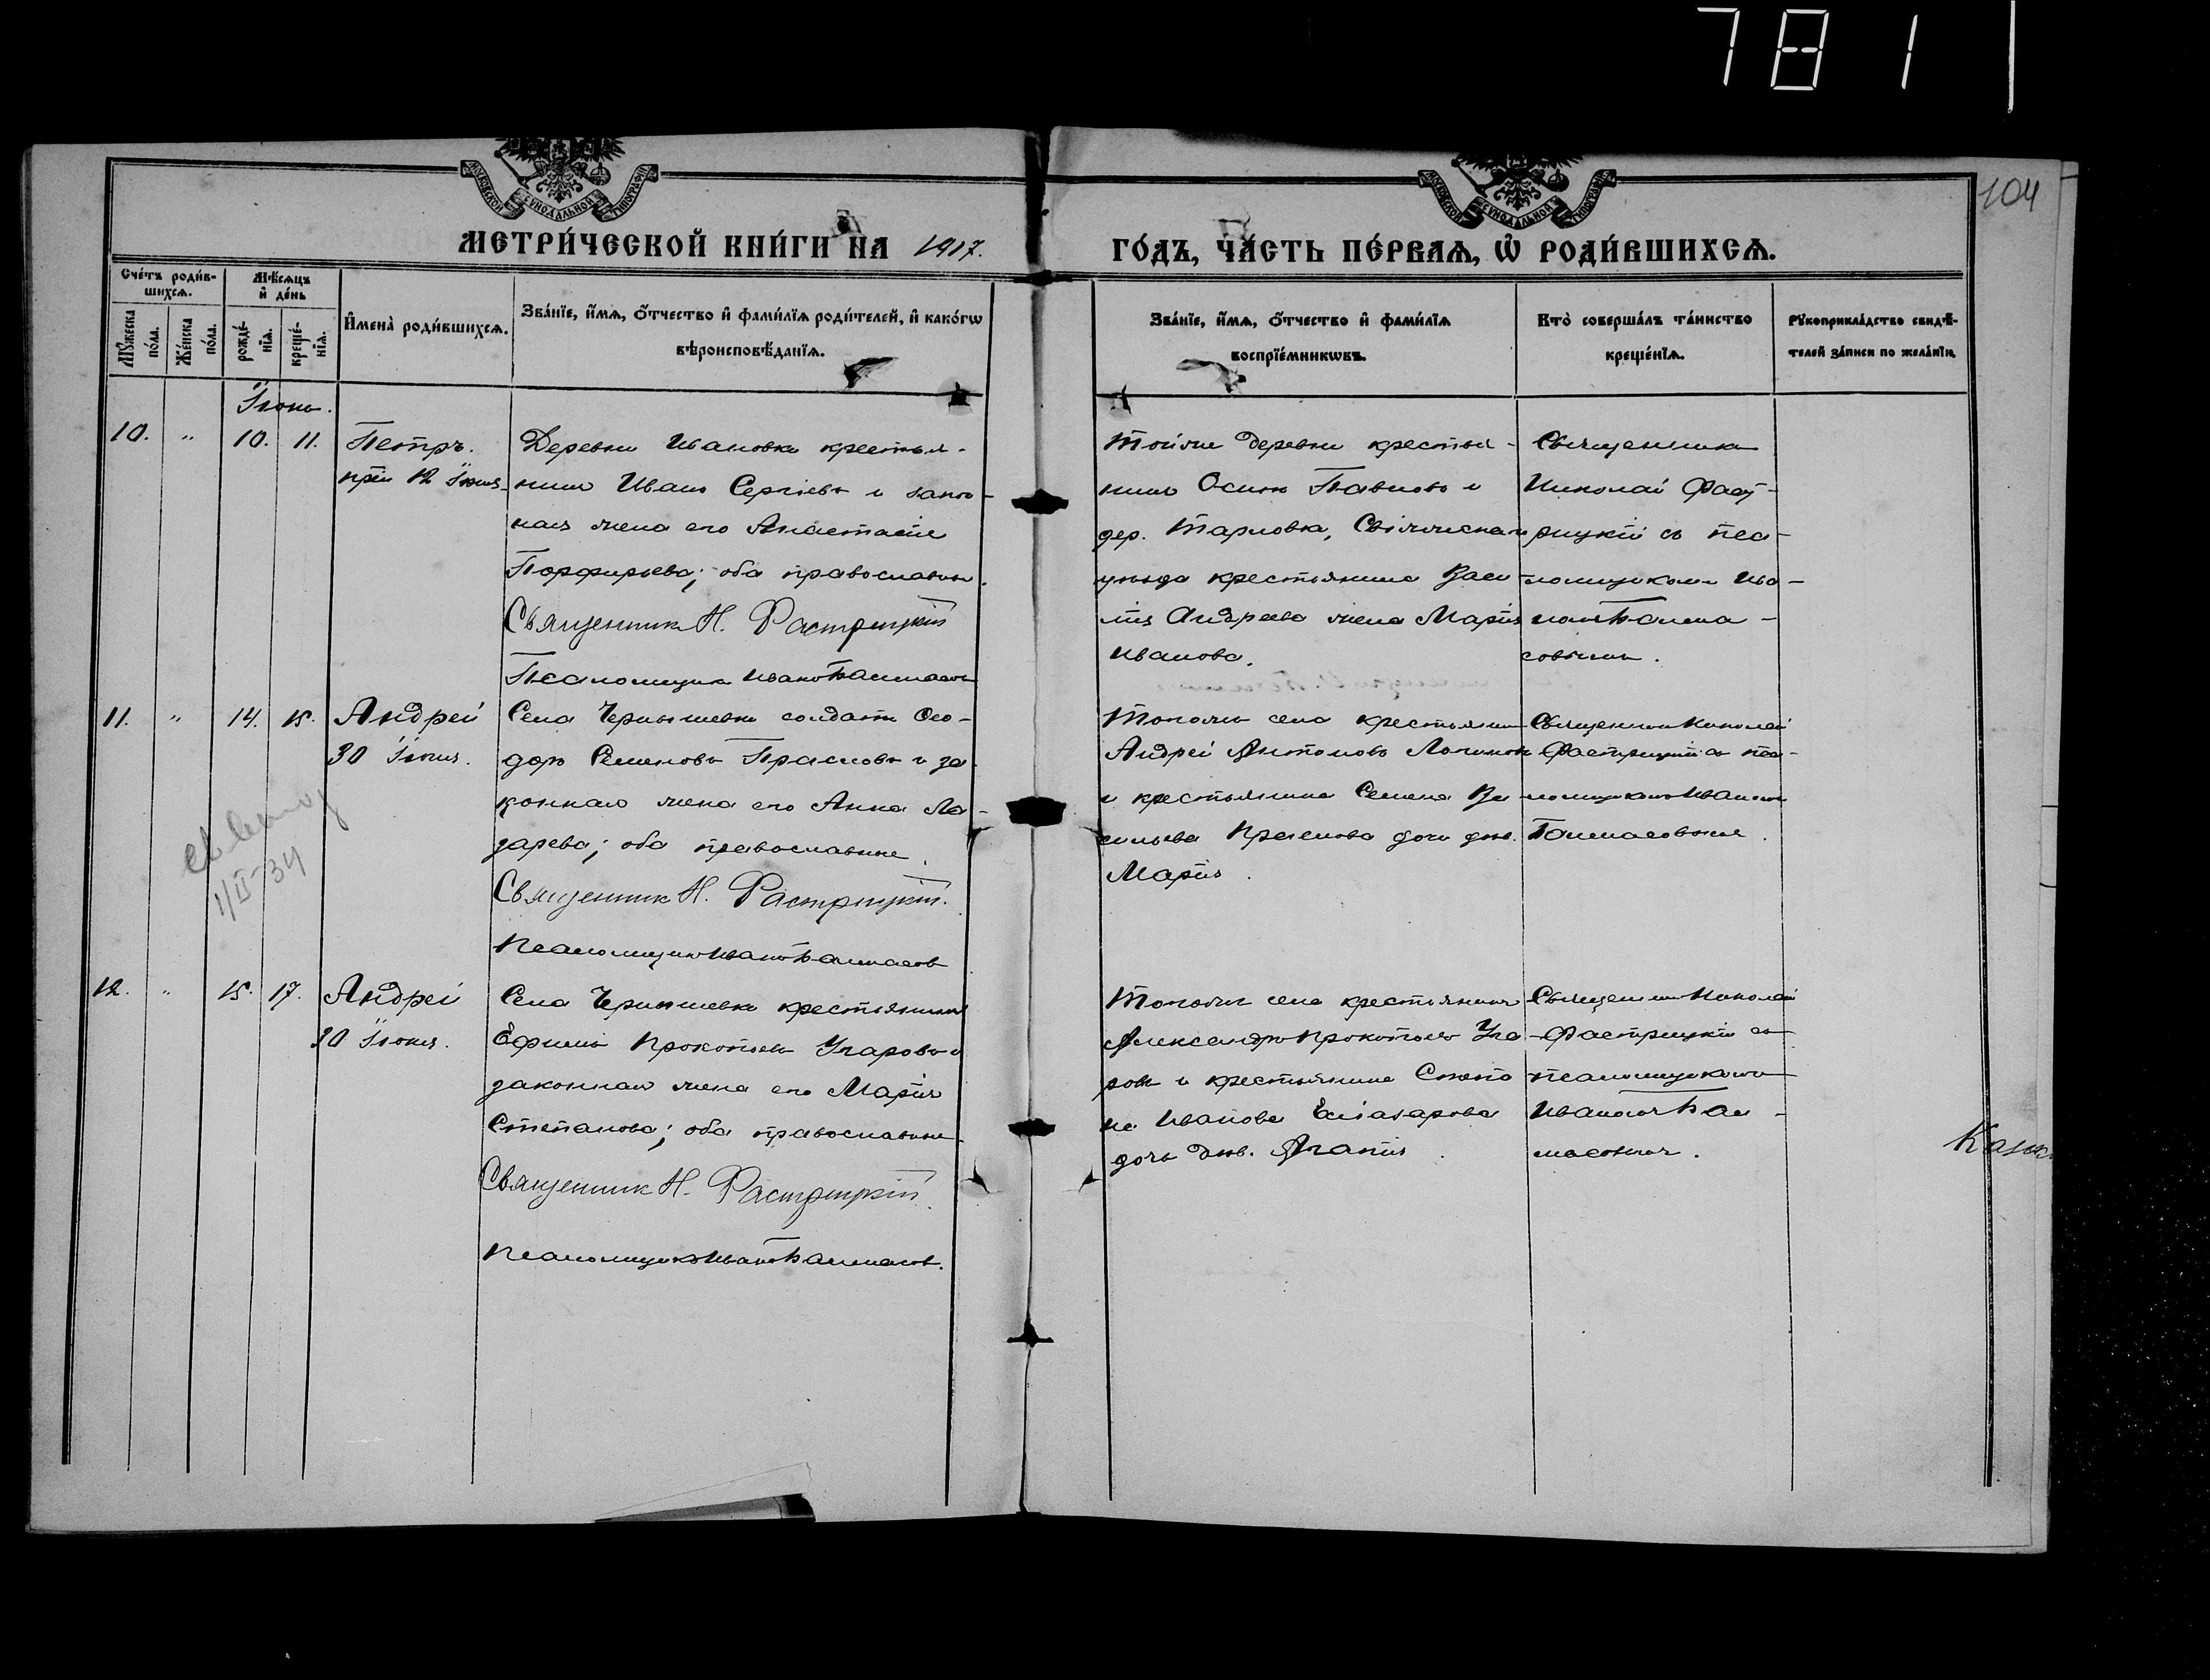 781
104
МОСКОВСКОЙ СУНОДАЛЬНОЙ ТИПОГРАФІИ
МОСКОВСКОЙ СУНОДАЛЬНОЙ ТИПОГРАФІИ
МЕТРИ́ЧЕСКОЙ КНИ́ГИ НА 1917.
ГО́ДЪ, ЧА́СТЬ ПЕ́РВАѦ, Ѡ҆ РОДИ́ВШИХСѦ.
Сче́тъ роди́в-
шихсѧ.
Мꙋ́жеска
по́ла.
Же́нска
по́ла.
Мѣ́сѧцъ
и҆ де́нь
рожде́-
нїѧ.
креще́-
нїѧ.
И҆мена̀ роди́вшихсѧ.
Зва́нїе, и҆́мѧ, ѻ҆́тчество и҆ фами́лїѧ роди́телей, и҆ како́гѡ
вѣроисповѣ́данїѧ.
Зва́нїе, и҆́мѧ, ѻ҆́тчество и҆ фами́лїѧ
воспрїе́мникѡвъ.
Кто̀ соверша́лъ та́инство
креще́нїѧ.
Рꙋкоприкла́дство свидѣ́-
телей за́писи по жела́нїю.
Іюнь.
10. " 10. 11. Петръ.
12 Іюня.
Деревни Ивановки крестья-
нинъ Иванъ Сергіевъ и закон-
ная жена его Анастасія
Порфирьева; оба православные.
Священникъ Н. Растрицкій
Псаломщикъ Иванъ
Тойже деревни крестья-
нинъ Осипъ Павловъ и
дер. Тарловка, Свіяжскаго
уѣзда крестьянина Васи-
лія Андреева жена Марія
Иванова.
Священникъ
Николай Раст-
рицкій съ пса-
ломщикомъ Ива-
номъ
11. " 14. 15. Андрей
30 Іюня.
Села Чернышевки солдатъ Ѳео-
доръ Семеновъ и за-
конная жена его Анна Ла-
зарева; оба православные.
Священникъ Н. Растрицкій.
Псаломщикъ Иванъ
Тогоже села крестьянинъ
Андрей Антоновъ
и крестьянина Семена Ва-
сильева дочь дѣв.
Марія.
Священникъ Николай
Растрицкій съ пса-
ломщикомъ Иваномъ
1/II-34
12. " 15. 17. Андрей
30 Іюня.
Села Чернышевки крестьянинъ
Ефимъ Прокопьевъ Угаровъ и
законная жена его Марія
Степанова; оба православные.
Священникъ Н. Растрицкій.
Псаломщикъ Иванъ
Тогоже села крестьянинъ
Александръ Прокопьевъ Уга-
ровъ и крестьянина Степа-
на Иванова Еліазарова
дочь дѣв. Агапія.
Священникъ Николай
Растрицкій съ
псаломщикомъ
Иваномъ